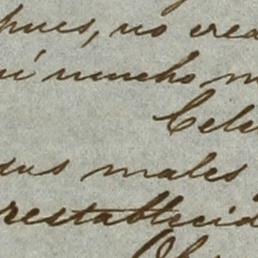 pues, no crea
mucho m
Cele
sus males
restablecid